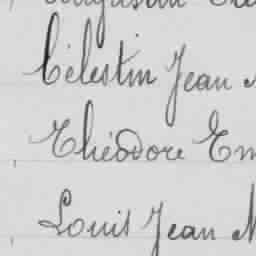 Célestin Jean
Théodore Em
Louis Jean M